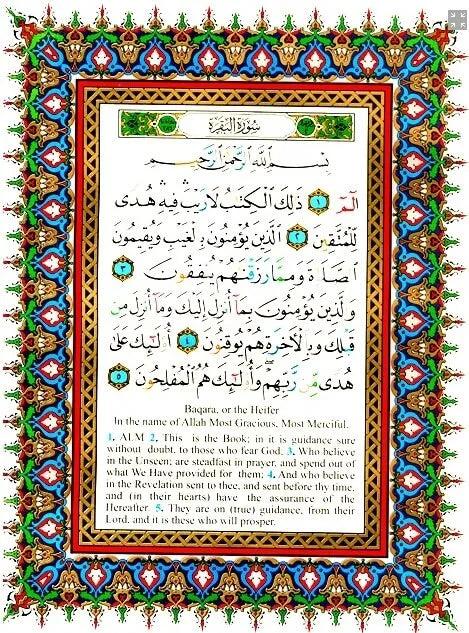 سُورَةُ الْبَقَرَةِ
بِسْمِ اللَّهِ الرَّحْمَٰنِ الرَّحِيمِ
الٓمٓ ١ ذَٰلِكَ ٱلْكِتَٰبُ لَا رَيْبَ فِيهِ هُدًى
لِّلْمُتَّقِينَ ٢ ٱلَّذِينَ يُؤْمِنُونَ بِٱلْغَيْبِ وَيُقِيمُونَ
ٱلصَّلَوٰةَ وَمِمَّا رَزَقْنَٰهُمْ يُنفِقُونَ ٣
وَٱلَّذِينَ يُؤْمِنُونَ بِمَآ أُنزِلَ إِلَيْكَ وَمَآ أُنزِلَ مِن
قَبْلِكَ وَبِٱلْءَاخِرَةِ هُمْ يُوقِنُونَ ٤ أُو۟لَٰٓئِكَ عَلَىٰ
هُدًى مِّن رَّبِّهِمْ وَأُو۟لَٰٓئِكَ هُمُ ٱلْمُفْلِحُونَ ٥
Baqara, or the Heifer
In the name of Allah Most Gracious, Most Merciful.
1. ALM 2. This is the Book; in it is guidance sure
without doubt, to those who fear God. 3. Who believe
in the Unseen; are steadfast in prayer, and spend out of
what We Have provided for them; 4. And who believe
in the Revelation sent to thee, and sent before thy time,
and (in their hearts) have the assurance of the
Hereafter 5. They are on (true) guidance, from their
Lord, and it is these who will prosper.